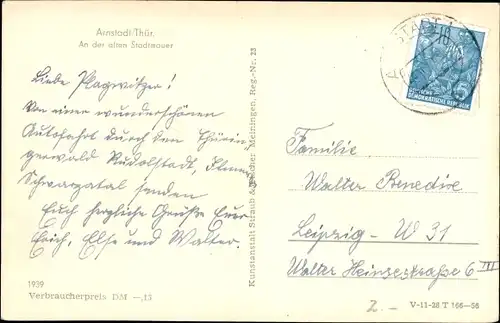 Arnstadt/Thür.
An der alten Stadtmauer
Liebe Plagwitzer!
Von einer wunderschönen
Autofahrt durch den Thürin-
gerwald Rudolstadt, Ilmenau
Schwarzatal senden
Euch herzliche Grüße Eure
Erich, Else und Walter.
1939
Verbraucherpreis DM -,15
Kunstanstalt Straub & Fischer Meiningen, Reg.-Nr. 23
DEUTSCHE
DEMOKRATISCHE REPUBLIK
5
Familie
Walter Benedix
Leipzig - W 31
Walter Heinzestraße 6 III
2.-
V-11-28 T 166-56